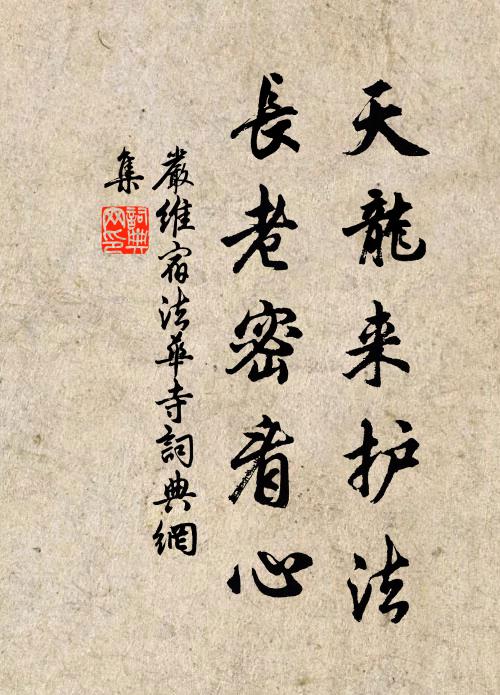 天龍来护法
長老密看心
嚴維宿法華寺詞典網
集
詞典
网印